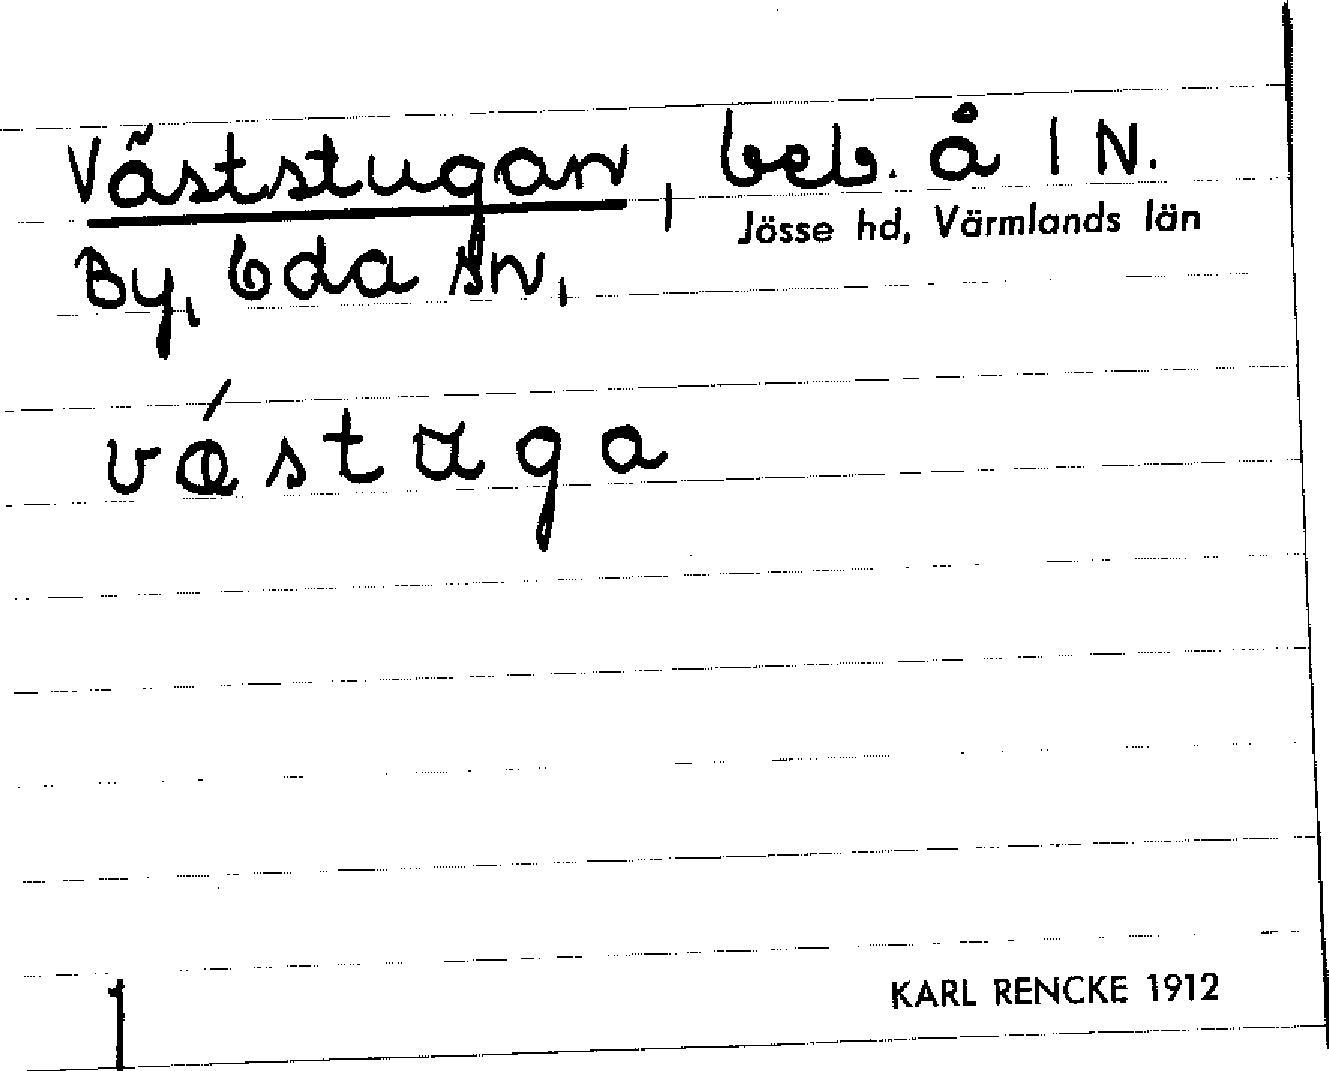 Väststugan, beb. å 1 N.
Jösse hd, Värmlands län
By, Eda sn,
västuga
1
KARL RENCKE 1912